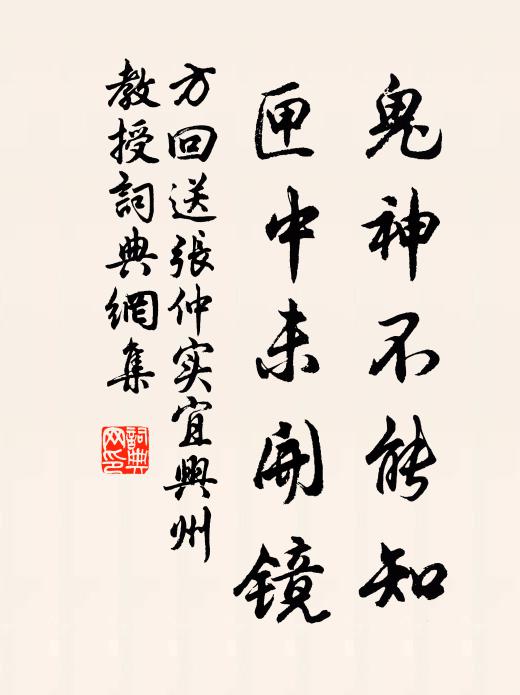 鬼神不能知
匣中未開镜
方回送張仲实宜興州
教授詞典網集
詞典網印